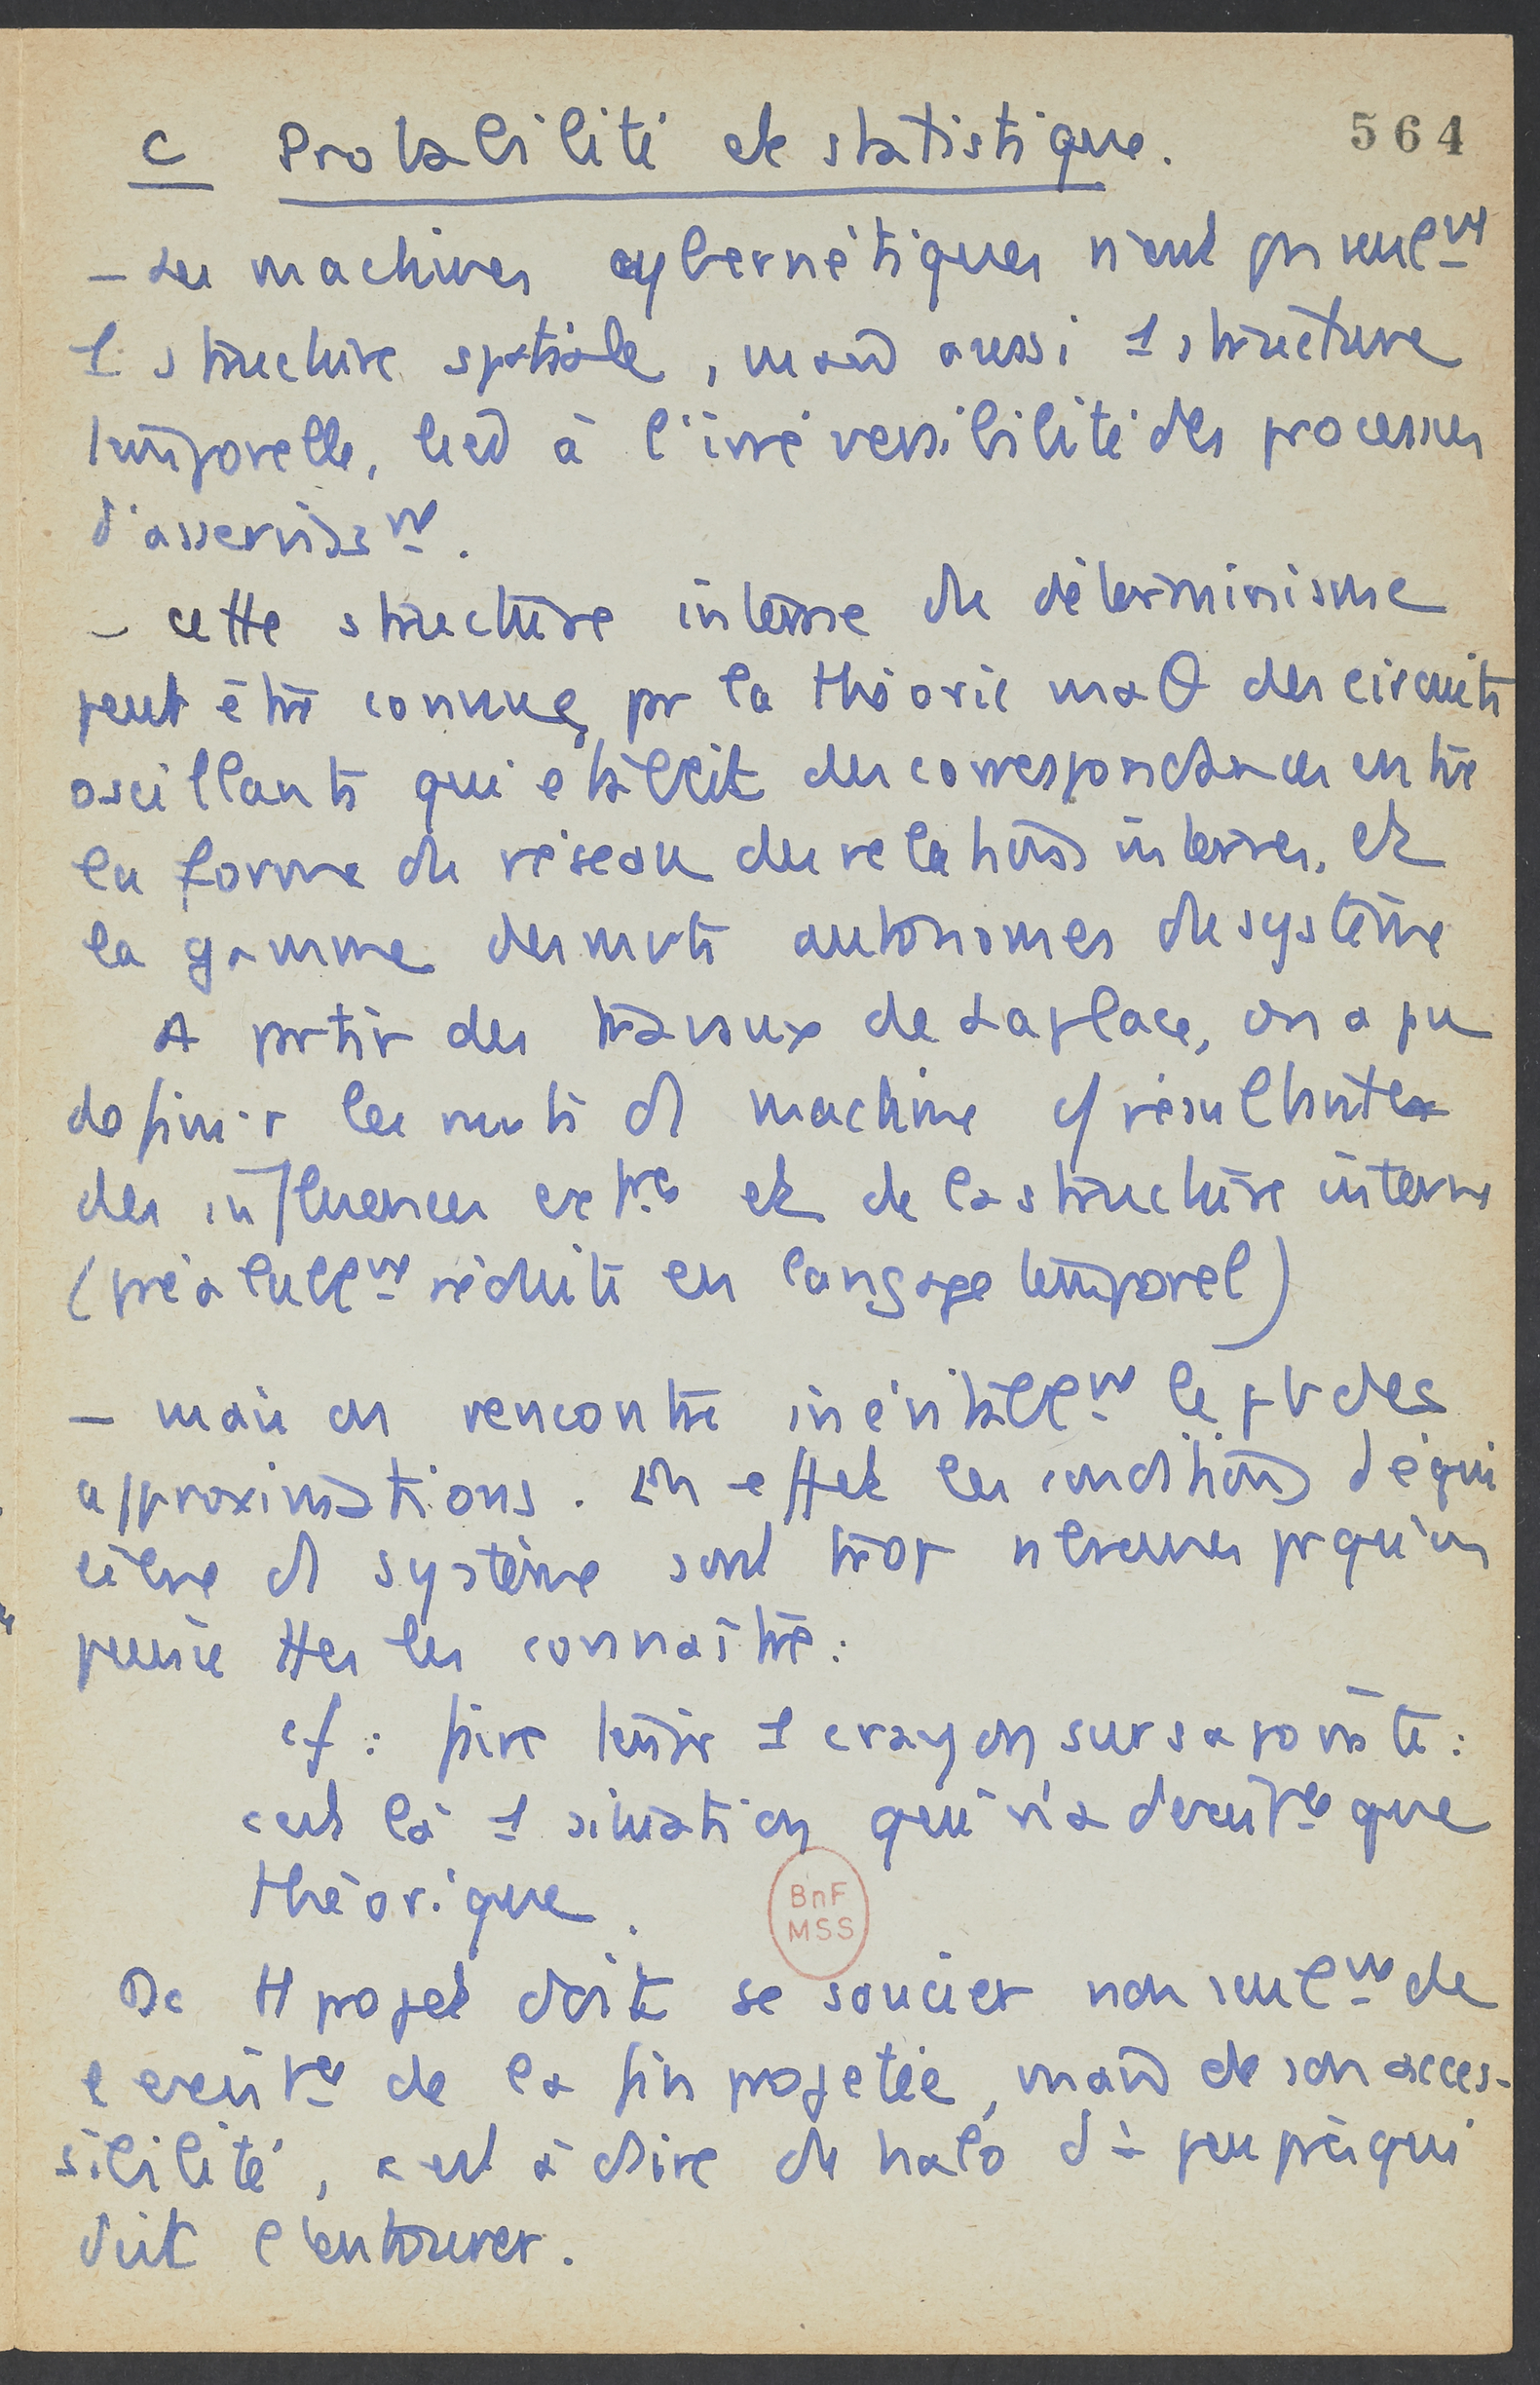 564
C Probabilité et statistique.
- Les machines cybernétiques n'ont pas seulmt
1 structure spatiale, mais aussi 1 structure
temporelle, liée à l'irréversibilité des processus
d'asservisst.
- cette structure interne du déterminisme
peut être connue, par la théorie maθ des circuits
oscillants qui établit des correspondances entre
la forme du réseau des relations internes, et
la gamme des mvts autonomes du système
A partir des travaux de Laplace, on a pu
définir les mvts d machine cf résultantes
des influences extres et de la structure interne
(préalablmt réduite en langage temporel)
- mais on rencontre inévitablmt le pb des
approximations. En effet les conditions d'équi
libre d système sont trop nbreuses pr qu'on
puisse ttes les connaître :
cf : faire tenir 1 crayon sur sa pointe :
c'est là 1 situation qui n'a d'existce que
théorique.
BnF
MSS
Dc tt projet doit se soucier non seulmt de
l'existce de la fin projetée, mais de son acces-
sibilité, c'est à dire du halo d'à peu près qui
doit l'entourer.